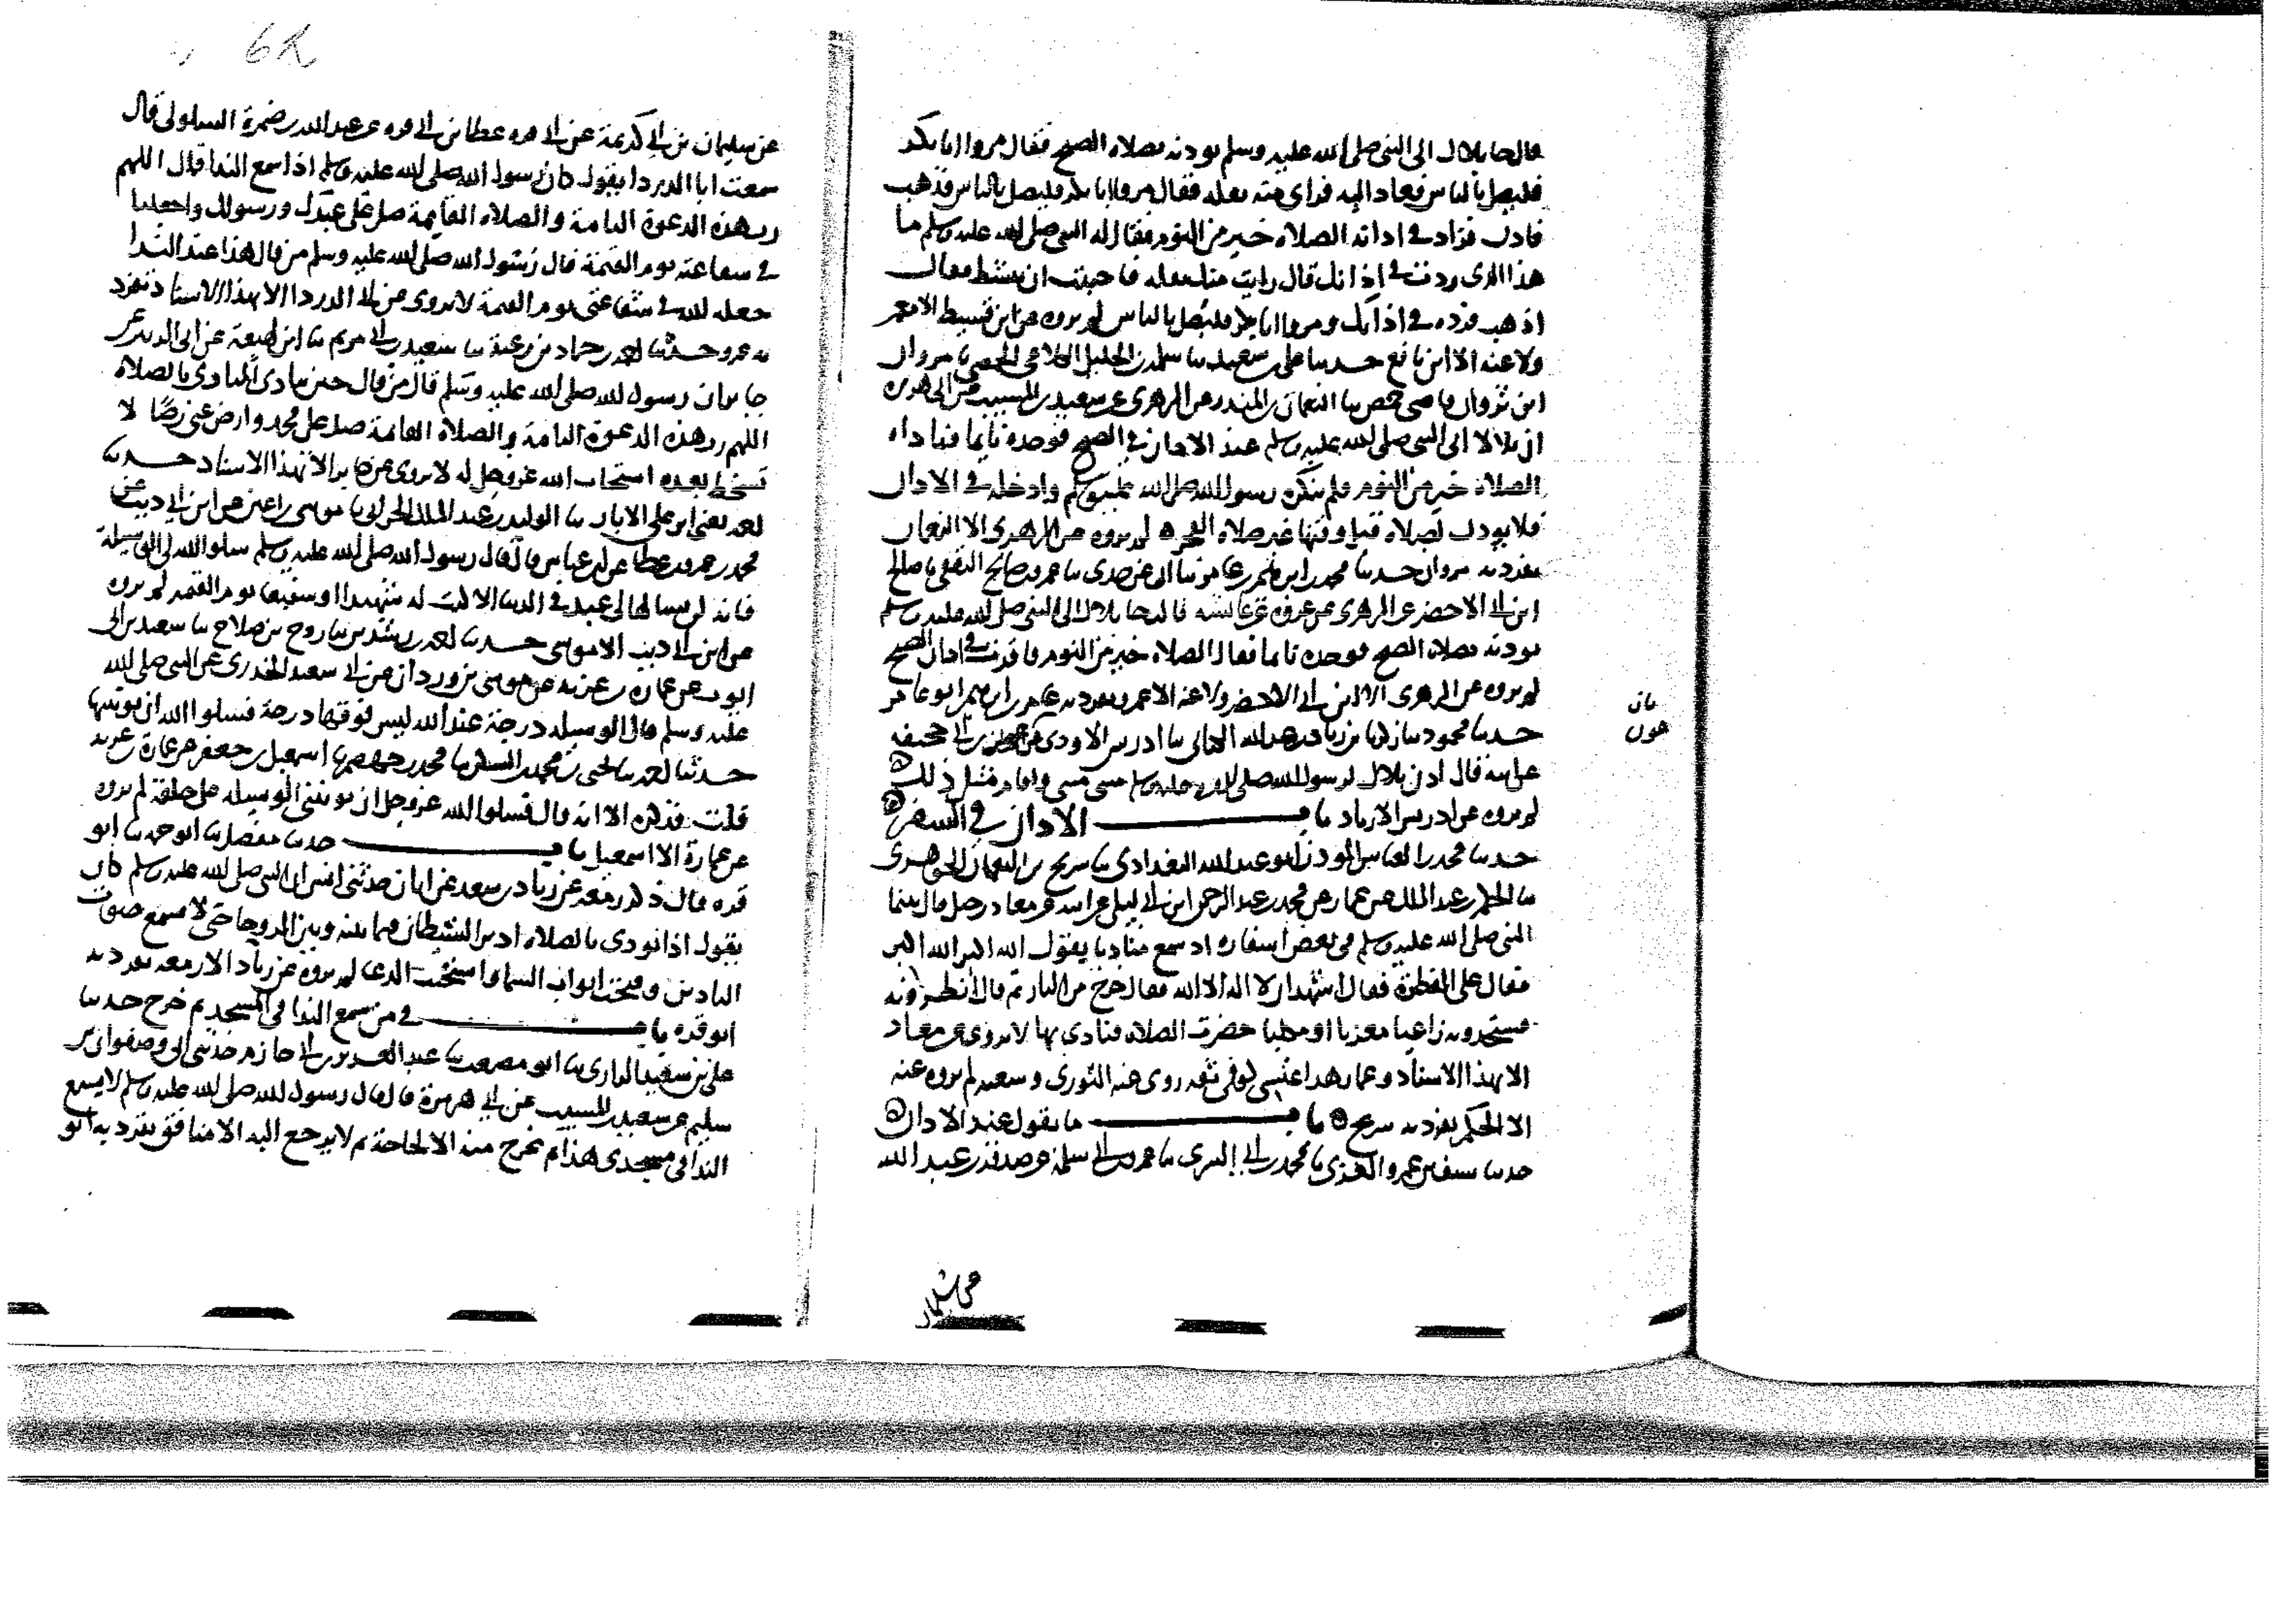 قال جا بلال الى النبي صلى الله عليه وسلم يوذنه بصلاة الصبح فقال مروا ابا بكر
فليصل بالناس فعاد اليه فراى منه فقال مروا ابا بكر فليصل بالناس فذهب
فاذن فزاد في اذانه الصلاة خير من النوم فقال له النبي صلى الله عليه وسلم ما
هذا الذي زدت في اذانك قال رايت منك فاحببت ان تنشط فقال
اذهب فزده في اذانك ومروا ابا بكر فليصل بالناس لم يروه عن ابن قسيط الا
ولا عنه الا ابن نافع حدثنا علي بن سعيد نا سلمة بن الخليل الكلاعي الحمصي نا مروان
ابن ثوبان قاضي حمص نا النعمان بن المنذر عن الزهري عن سعيد بن المسيب عن ابي هريرة
ان بلالا اتى النبي صلى الله عليه وسلم عند الاذان في الصبح فوجده نايما فناداه
الصلاة خير من النوم فلم ينكره رسول الله صلى الله عليه وسلم وادخله في الاذان
فلا يوذن لصلاة قبل وقتها غير صلاة الفجر لم يروه عن الزهري الا النعمان
تفرد به مروان حدثنا محمد بن ابراهيم بن عامر نا ابي عن جدي نا عمرو بن صالح الثقفي نا صالح
ابن ابي الاخضر عن الزهري عن عروة عن عائشة قالت جا بلال الى النبي صلى الله عليه وسلم
يوذنه بصلاة الصبح فوجده نايما فقال الصلاة خير من النوم فاقرت في اذان الصبح
لم يروه عن الزهري الا ابن ابي الاخضر ولا عنه الا عمرو تفرد به عامر بن ابراهيم ابو عامر
حدثنا محمود نا زكريا نا زياد بن عبد الله البكائي نا ادريس الاودي عن عون بن ابي جحيفة
عن ابيه قال اذن بلال لرسول الله صلى الله عليه وسلم مثنى مثنى واقام مثل ذلك
لم يروه عن ادريس الا زياد باب الاذان في السفر
حدثنا محمد بن العباس المودب ابو عبد الله البغدادي نا سريج بن النعمان الجوهري
نا الحكم بن عبد الملك عن عمار عن محمد بن عبد الرحمن ابن ابي ليلى عن ابيه عن معاذ بن جبل قال بينما
النبي صلى الله عليه وسلم في بعض اسفاره اذ سمع مناديا يقول الله اكبر الله اكبر
فقال على الفطرة فقال اشهد ان لا اله الا الله فقال خرج من النار ثم قال انظروه
فستجدونه راعيا معزبا او مكلبا حضرت الصلاة فنادى بها لا يروى عن معاذ
الا بهذا الاسناد وعمار هذا عنسي كوفي ثقة روى عنه الثوري وسعيد لم يروه عنه
الا الحكم تفرد به سريج باب ما يقول عند الاذان
حدثنا سيف بن عمرو الغزي نا محمد بن ابي السري نا عمرو بن ابي سلمة عن صدقة بن عبد الله
مان
عون
عن سليمان
عن سليمان بن ابي كريمة عن ابي قرة عطا بن ابي قرة عن عبد الله بن ضمرة السلولي قال
سمعت ابا الدردا يقول كان رسول الله صلى الله عليه وسلم اذا سمع الندا قال اللهم
رب هذه الدعوة التامة والصلاة القايمة صل على عبدك ورسولك واجعلنا
في شفاعته يوم القيمة قال رسول الله صلى الله عليه وسلم من قال هذا عند الندا
جعله الله في شفاعتي يوم القيمة لا يروى عن ابي الدردا الا بهذا الاسناد تفرد
به عمرو حدثنا احمد بن حماد بن زغبة نا سعيد بن ابي مريم نا ابن لهيعة عن ابي الزبير عن
جابر ان رسول الله صلى الله عليه وسلم قال من قال حين ينادي المنادي بالصلاة
اللهم رب هذه الدعوة التامة والصلاة القايمة صل على محمد وارض عني رضا لا
تسخط بعده استجاب الله عز وجل له لا يروى عن جابر الا بهذا الاسناد حدثنا
احمد يعني ابن علي الابار نا الوليد بن عبد الملك الحراني نا موسى بن اعين عن ابن ابي ذيب عن
محمد بن عمرو بن عطا عن ابن عباس قال قال رسول الله صلى الله عليه وسلم سلوا الله لي الوسيلة
فانه لم يسالها لي عبد في الدنيا الا كنت له شهيدا او شفيعا يوم القيمة لم يروه
عن ابن ابي ذيب الا موسى حدثنا احمد بن رشدين نا روح بن صلاح نا سعيد بن ابي
ايوب عن عمارة بن غزية عن موسى بن وردان عن ابي سعيد الخدري عن النبي صلى الله
عليه وسلم قال الوسيلة درجة عند الله ليس فوقها درجة فسلوا الله ان يوتينيها
حدثنا احمد نا يحيى بن محمد بن السكن نا محمد بن جهضم نا اسمعيل بن جعفر عن عمارة بن غزية
قلت فذكره الا انه قال فسلوا الله عز وجل ان يوتيني الوسيلة على خلقه لم يروه
عن عمارة الا اسمعيل باب حدثنا مفضل نا ابو حمة نا ابو
قرة قال ذكر زمعة عن زياد بن سعد عن ابان حدثني انس ان النبي صلى الله عليه وسلم كان
يقول اذا نودي بالصلاة ادبر الشيطان فيما بينه وبين الروحا حتى لا يسمع صوت
التاذين وفتحت ابواب السما واستجيب الدعا لم يروه عن زياد الا زمعة تفرد به
ابو قرة باب في من سمع الندا في المسجد ثم خرج حدثنا
علي بن سعيد الرازي نا ابو مصعب نا عبد العزيز بن ابي حازم حدثني ابي وصفوان بن
سليم عن سعيد بن المسيب عن ابي هريرة قال قال رسول الله صلى الله عليه وسلم لا يسمع
الندا في مسجدي هذا ثم يخرج منه الا لحاجة ثم لا يرجع اليه الا منافق تفرد به ابو